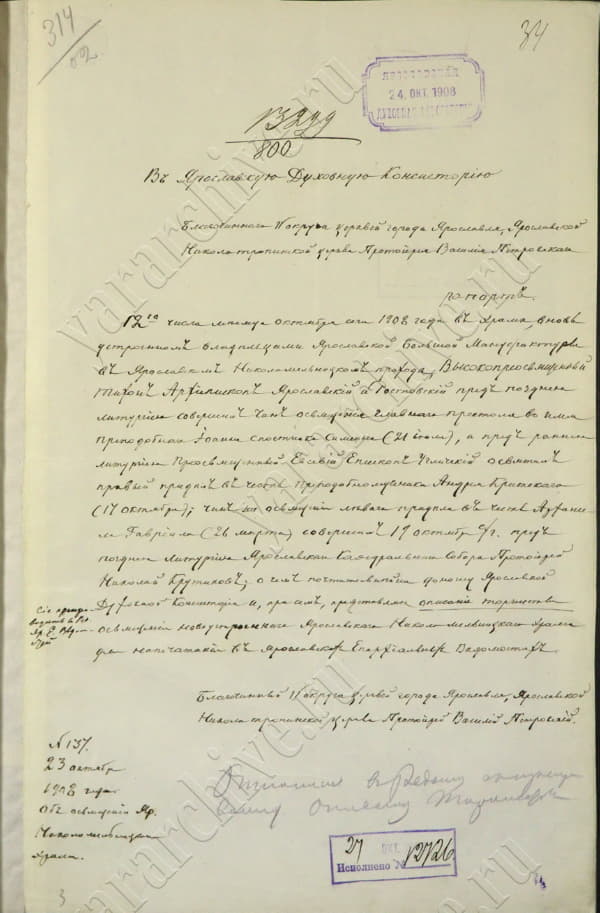 314
34
ЯРОСЛАВСКАЯ
24. ОКТ. 1908
ДУХОВНАЯ КОНСИСТОРІЯ
800
Въ Ярославскую Духовную Консисторію
Благочиннаго II округа церквей города Ярославля, Ярославской
Николотропинской церкви Протоіерея Василія Петровскаго
рапортъ.
12го числа октября сего 1908 года въ храмѣ, вновь
устроенномъ владѣльцами Ярославской Большой Мануфактуры
въ Ярославскомъ Николомельницкомъ приходѣ, Высокопреосвященный
Тихонъ Архіепископъ Ярославскій и Ростовскій предъ позднею
литургіею совершилъ чинъ освященія главнаго престола во имя
преподобнаго Іоанна спостника Симеона (21 іюля), а предъ раннею
литургіею Преосвященный Евсевій Епископъ Угличскій освятилъ
правый придѣлъ въ честь Преподобномученика Андрея Критскаго
(17 октября); чинъ же освященія лѣваго придѣла въ честь Архангела
Гавріила (26 марта) совершилъ 19 октября предъ
позднею литургіею Ярославскаго Кафедральнаго Собора Протоіерей
Николай Брутиковъ; о чемъ почтительнѣйше доношу Ярославской
Духовной Консисторіи и, при семъ, представляю описаніе торжества
освященія новоустроеннаго Ярославскаго Николомельницкаго храма
для напечатанія въ Ярославскихъ Епархіальныхъ Вѣдомостяхъ.
Благочинный II округа церквей города Ярославля, Ярославской
Николотропинской церкви Протоіерей Василій Петровскій.
№ 137.
23 октября
1908 года
Объ освященіи Яр.
Николомельницкаго
храма.
27 ОКТ.
Исполнено № 12726
yararchive.ru